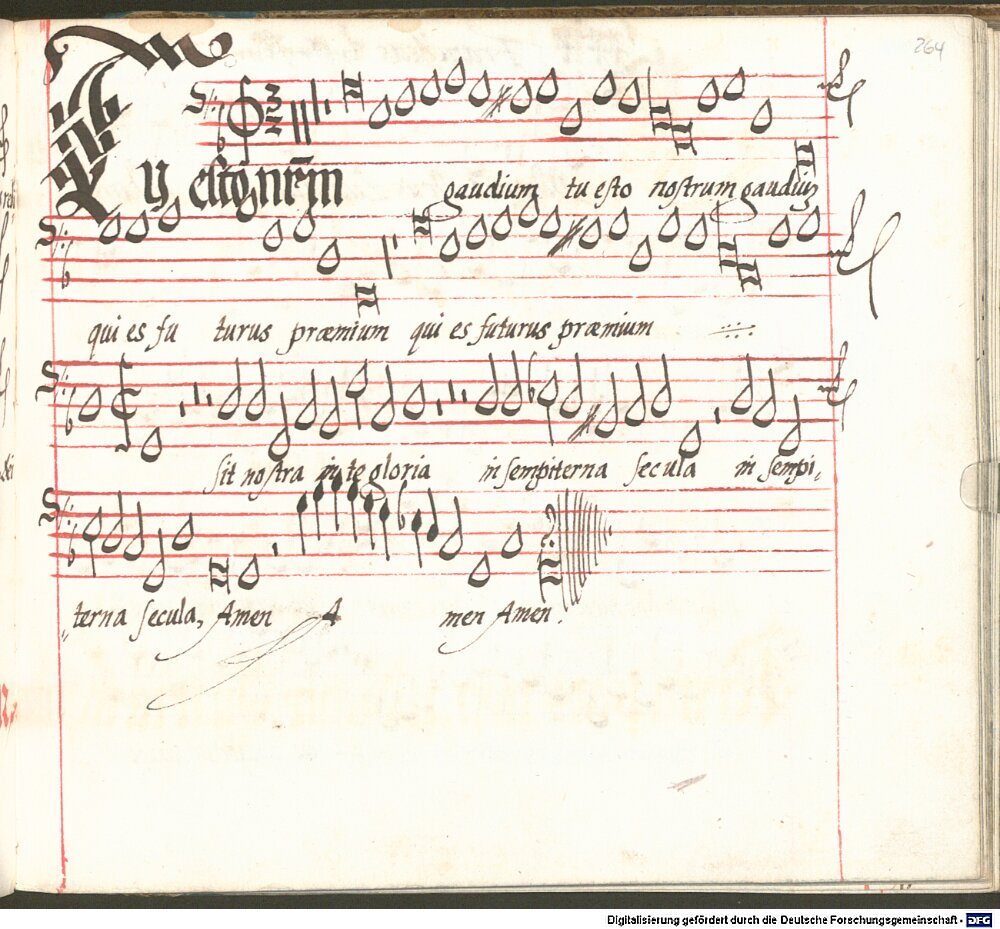 264
Tu esto nr̄m gaudium tu esto nostrum gaudiū
qui es fu turus præmium qui es futurus præmium
sit nostra in te gloria in sempiterna secula in sempi,
terna secula, Amen A men Amen.
Digitalisierung gefördert durch die Deutsche Forschungsgemeinschaft - DFG